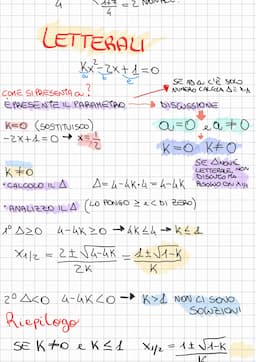 4
4
= 2 NON
LETTERALI
Kx²-2x+1=0
a b c
SE AD a C'È SOLO
NUMERO CALCOLA Δ
COME SI PRESENTA a?
E PRESENTE IL PARAMETRO → DISCUSSIONE
K=0 (SOSTITUISCO)
a=0 e a≠0
-2x+1=0 → x=1/2
K=0 K≠0
SE Δ
LETTERALE, NON
DISCUTO MA
RISOLVO CON X1/2
K≠0
• CALCOLO IL Δ Δ=4-4K·1=4-4K
• ANALIZZO IL Δ (LO PONGO ≥ e < DI ZERO)
1° Δ≥0 4-4K≥0 → 4K≤4 → K≤1
X1/2 = 2±√4-4K / 2K = 1±√1-K / K
2° Δ<0 4-4K<0 → K>1 NON CI SONO
SOLUZIONI
Riepilogo
SE K≠0 e K≤1 X1/2 = 1±√1-K / K